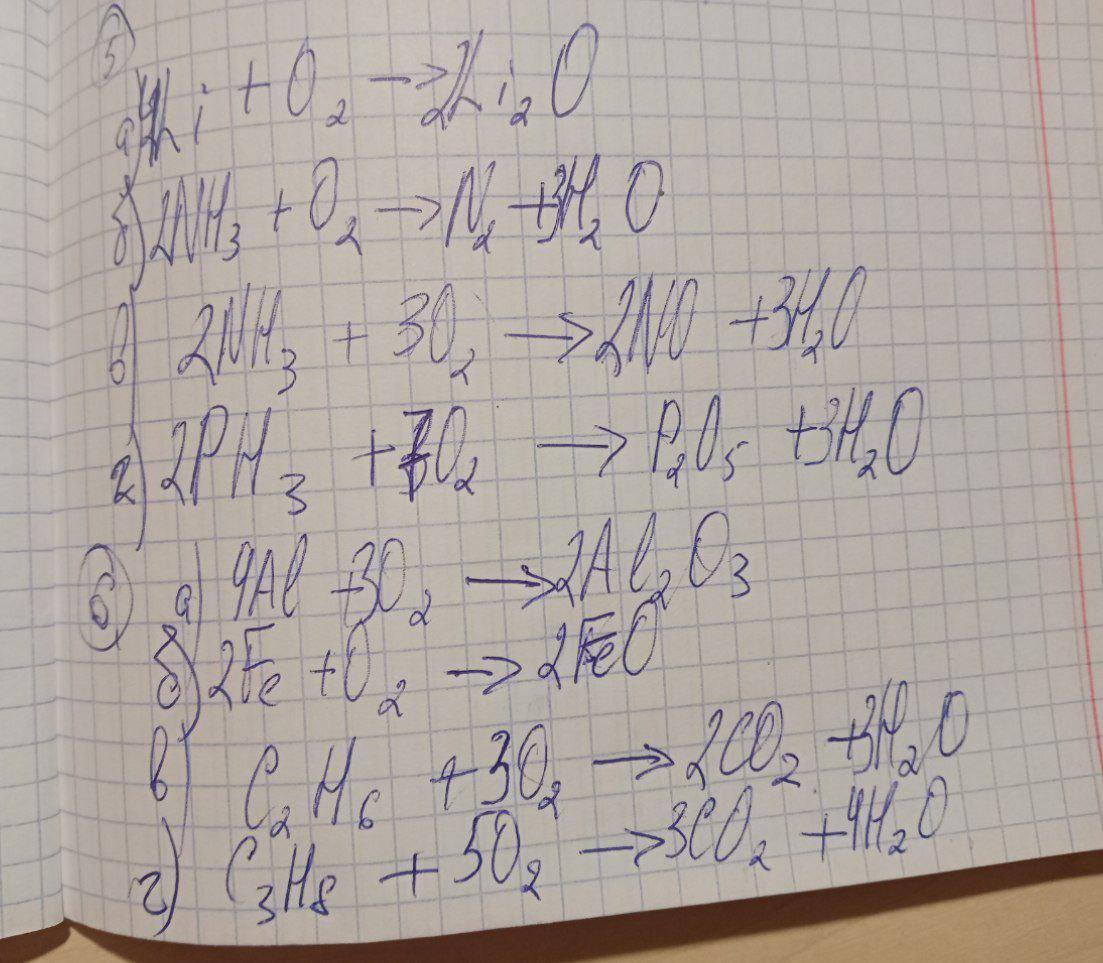 5
а) 4Li + O₂ → 2Li₂O
б) 2NH₃ + O₂ → N₂ + 3H₂O
в) 2NH₃ + 3O₂ → 2NO + 3H₂O
г) 2PH₃ + O₂ → P₂O₅ + 3H₂O
6
а) 4Al + 3O₂ → 2Al₂O₃
б) 2Fe + O₂ → 2FeO
в) C₂H₆ + 3O₂ → 2CO₂ + 3H₂O
г) C₃H₈ + 5O₂ → 3CO₂ + 4H₂O